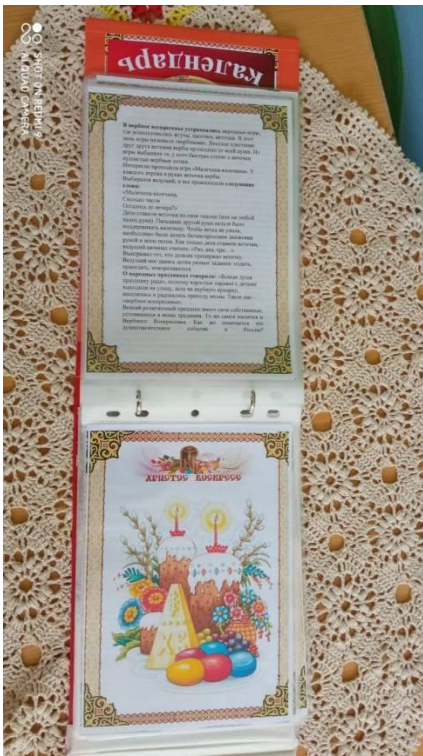 календарь
В вербное воскресенье устраивались народные игры,
где использовались жгуты, палочки, веточки. В этот
день игры назывались «вербными». Вначале хлестали
друг друга ветками вербы
пушистые вербные почки.
Интересно проходила игра «Малечена-калечина». У
каждого игрока в руках веточка вербы.
Выбирался ведущий, и все произносили следующие
слова:
«Малечина-калечина,
Сколько часов
Осталось до вечера?»
Дети ставили веточки на свои ладони (или на любой
палец руки). Пальцами другой руки нельзя было
поддерживать палочку. Чтобы ветка не упала,
необходимо было делать балансирующие движения
рукой и всем телом. Как только дети ставили веточки,
ведущий начинал считать: «Раз, два, три…»
Выигрывал тот, кто дольше продержал веточку.
Ведущий мог давать детям разные задания: ходить,
приседать, поворачиваться.
О народных праздниках говорили: «Всякая душа
празднику рада», поэтому взрослые парами с детьми
выходили на улицу, шли на вербного ярмарку,
веселились и радовались приходу весны. Такое оно
«вербное воскресенье».
Всякий религиозный праздник имеет свои собственные,
устоявшиеся в веках традиции. То же самое касается и
Вербного Воскресения. Как же отмечается это
событие в России?
ХРИСТОС ВОСКРЕСЕ
ХВ
SHOT ON REDMI 9
AI QUAD CAMERA